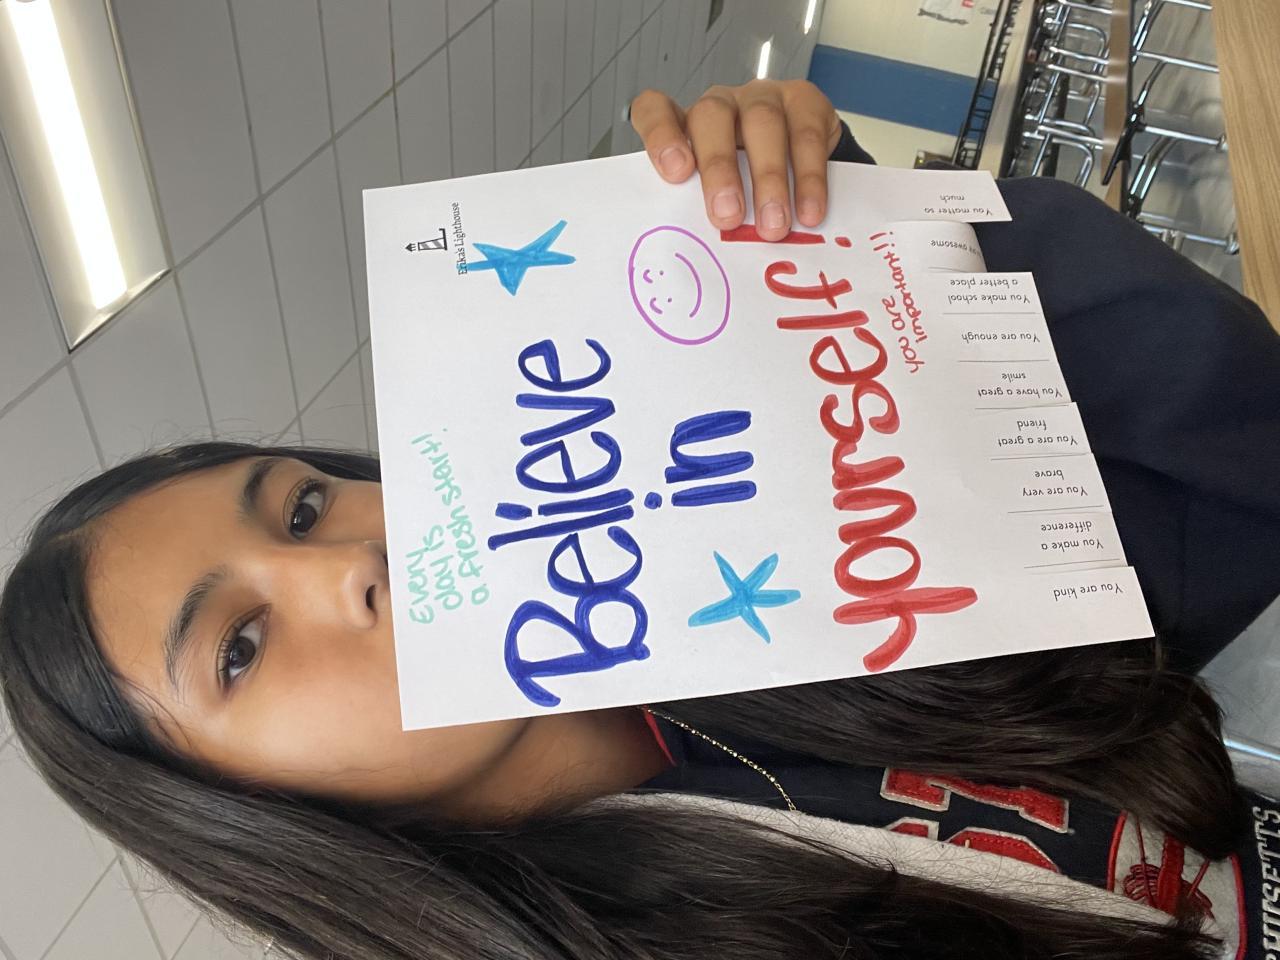 Erika's Lighthouse
Every
day is
a fresh start!
Believe
in
yourself!
you are
important!!
You are kind
You make a
difference
You are very
brave
You are a great
friend
You have a great
smile
You are enough
You make school
a better place
awesome
You matter so
much